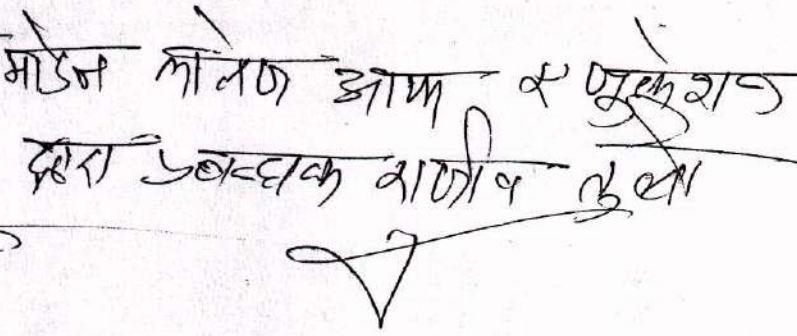 मार्डन कालेज आफ एजुकेशन
द्वारा प्रबन्धक राजीव